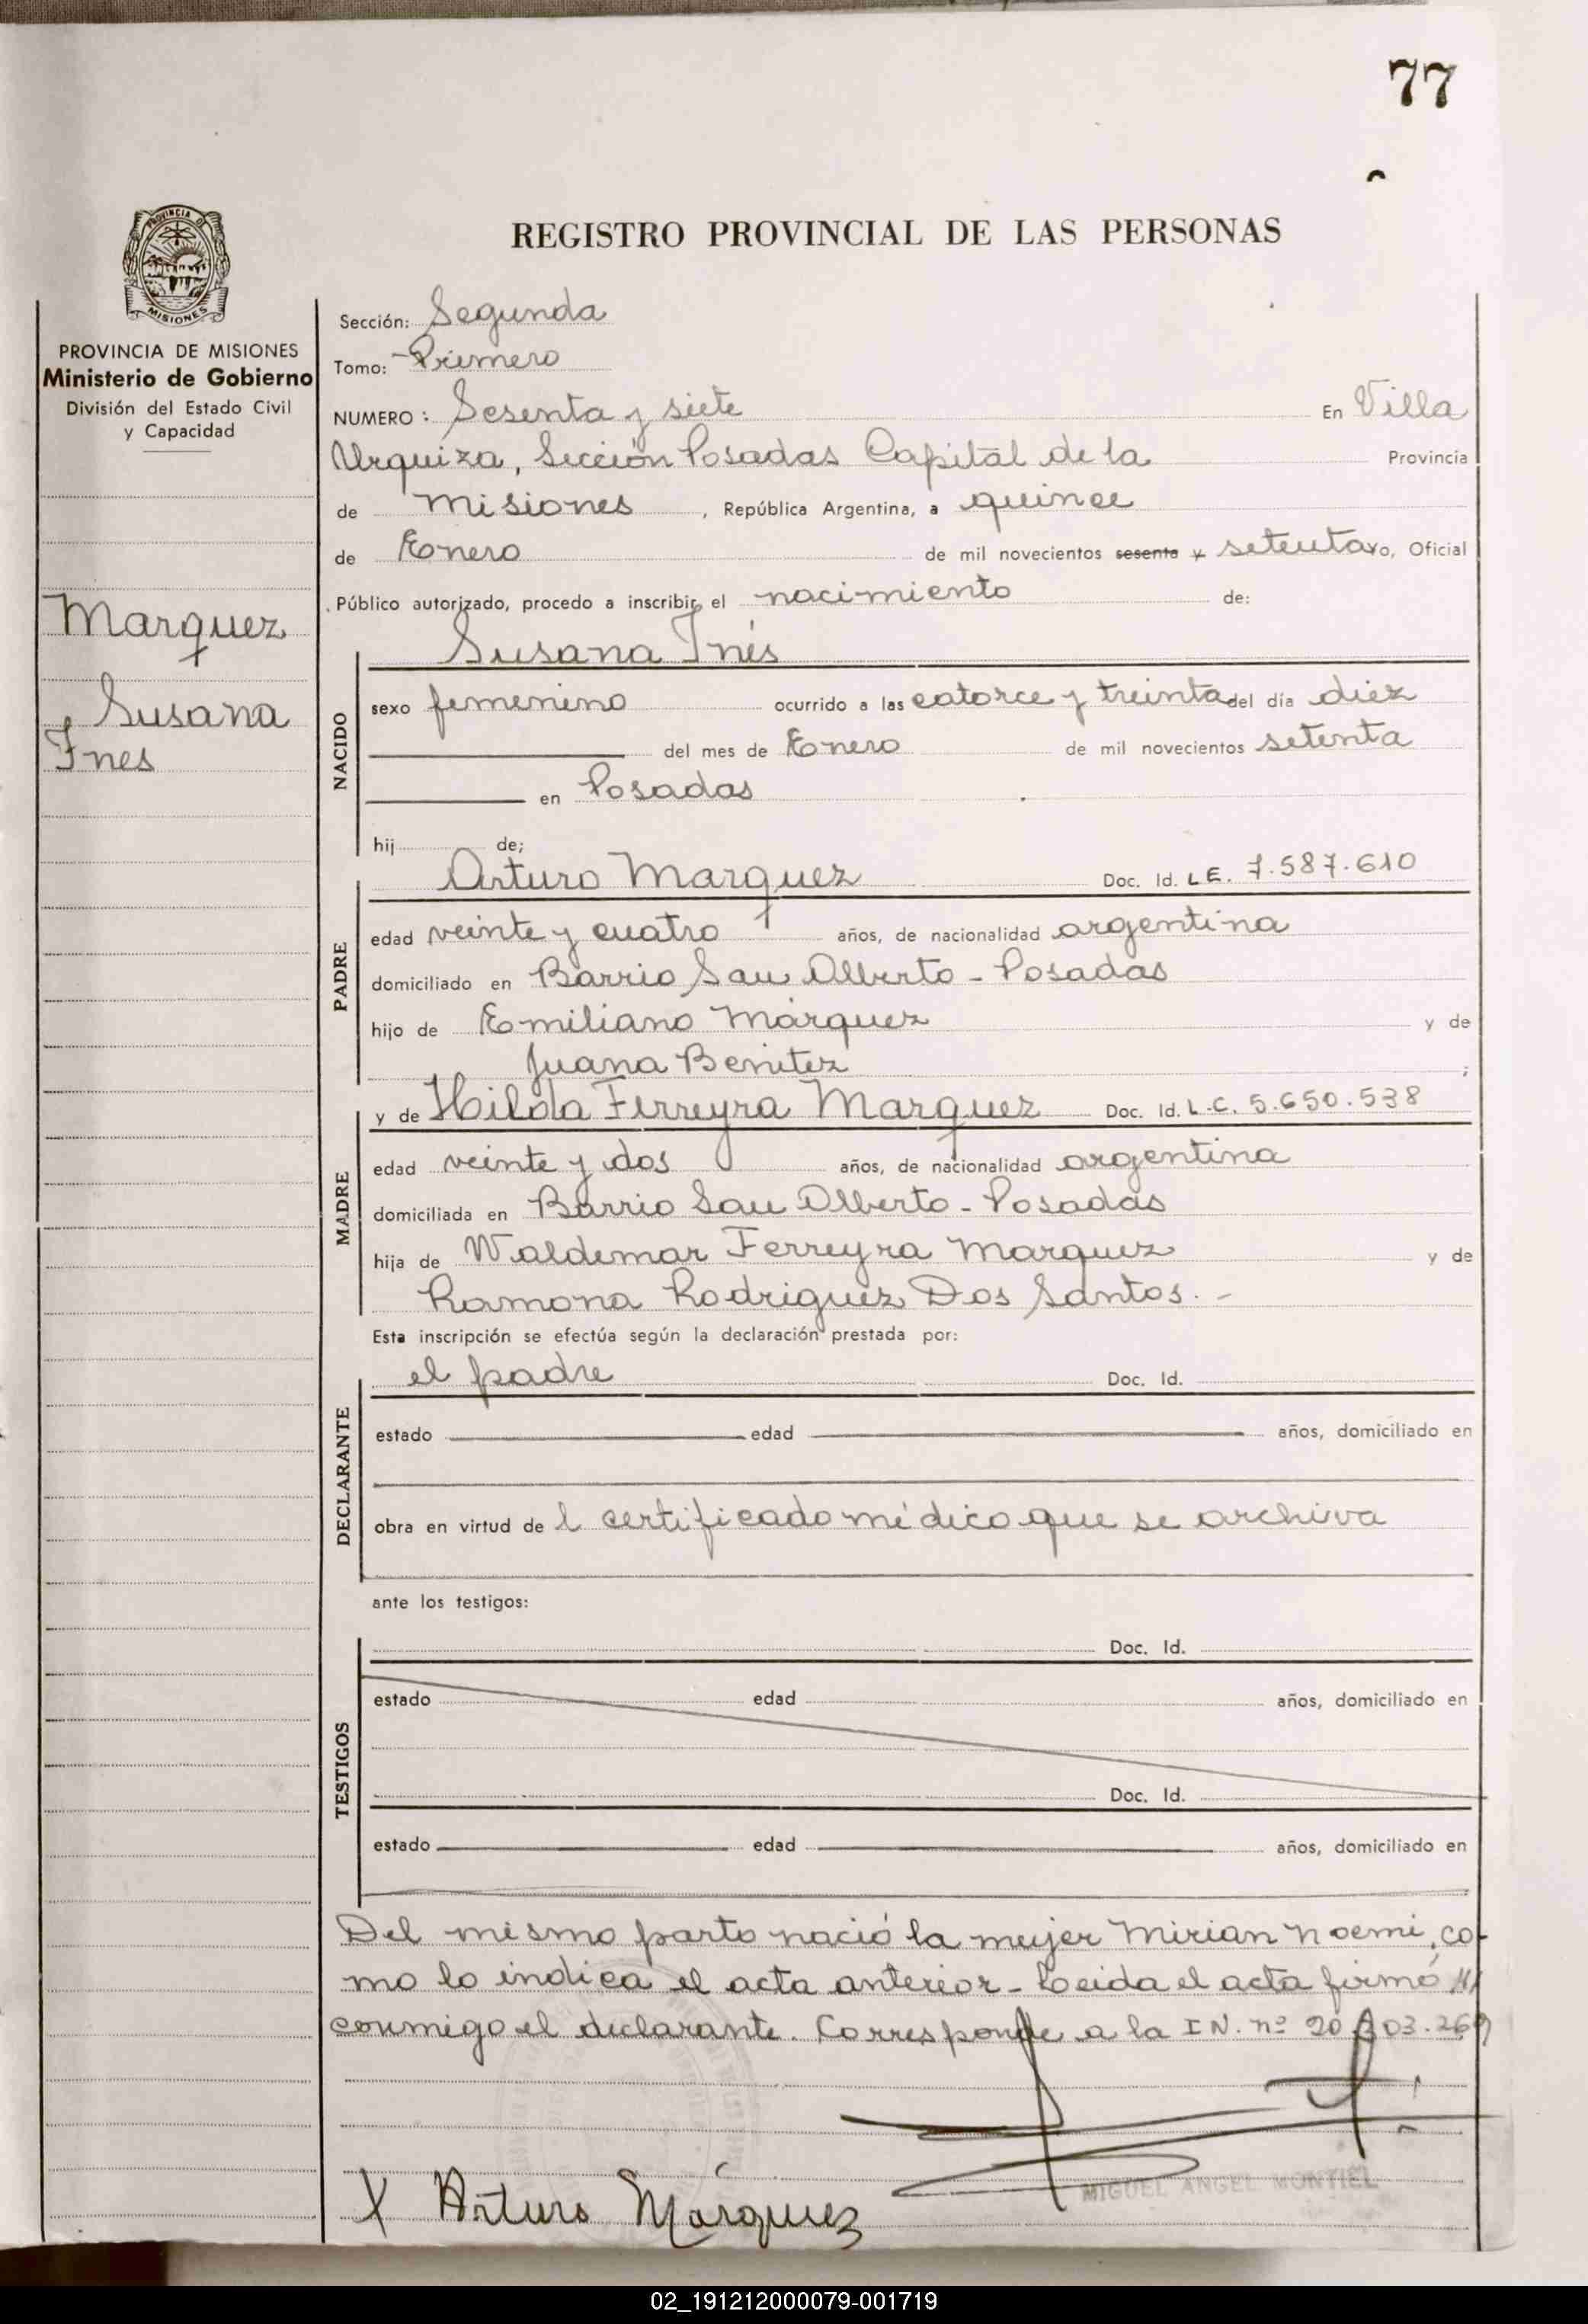 77
REGISTRO PROVINCIAL DE LAS PERSONAS
PROVINCIA DE MISIONES
Ministerio de Gobierno
División del Estado Civil
y Capacidad
Marquez
Susana
Ines
Sección: Segunda
Tomo: Primero
NUMERO: Sesenta y siete En Villa
Urquiza, Sección Posadas Capital de la Provincia
de Misiones, República Argentina, a quince
de Enero de mil novecientos sesenta y setenta yo, Oficial
Público autorizado, procedo a inscribir el nacimiento de:
Susana Inés
NACIDO
sexo femenino ocurrido a las catorce y treinta del día diez
del mes de Enero de mil novecientos setenta
en Posadas
hij de;
PADRE
Arturo Marquez Doc. Id. L E. 7.587.610
edad veinte y cuatro años, de nacionalidad argentina
domiciliado en Barrio San Alberto - Posadas
hijo de Emiliano Márquez y de
Juana Benitez ;
MADRE
y de Hilda Ferreyra Marquez Doc. Id. L.C. 5.650.538
edad veinte y dos años, de nacionalidad argentina
domiciliada en Barrio San Alberto - Posadas
hija de Waldemar Ferreyra Marquez y de
Ramona Rodriguez Dos Santos. -
Esta inscripción se efectúa según la declaración prestada por:
DECLARANTE
el padre Doc. Id.
estado edad años, domiciliado en
obra en virtud de l certificado médico que se archiva
ante los testigos:
TESTIGOS
Doc. Id.
estado edad años, domiciliado en
Doc. Id.
estado edad años, domiciliado en
Del mismo parto nació la mujer Mirian Noemi, co-
mo lo indica el acta anterior - Leida el acta firmó
conmigo el declarante. Corresponde a la I N. nº
X Arturo Márquez
MIGUEL ANGEL MONTIEL
02_191212000079-001719